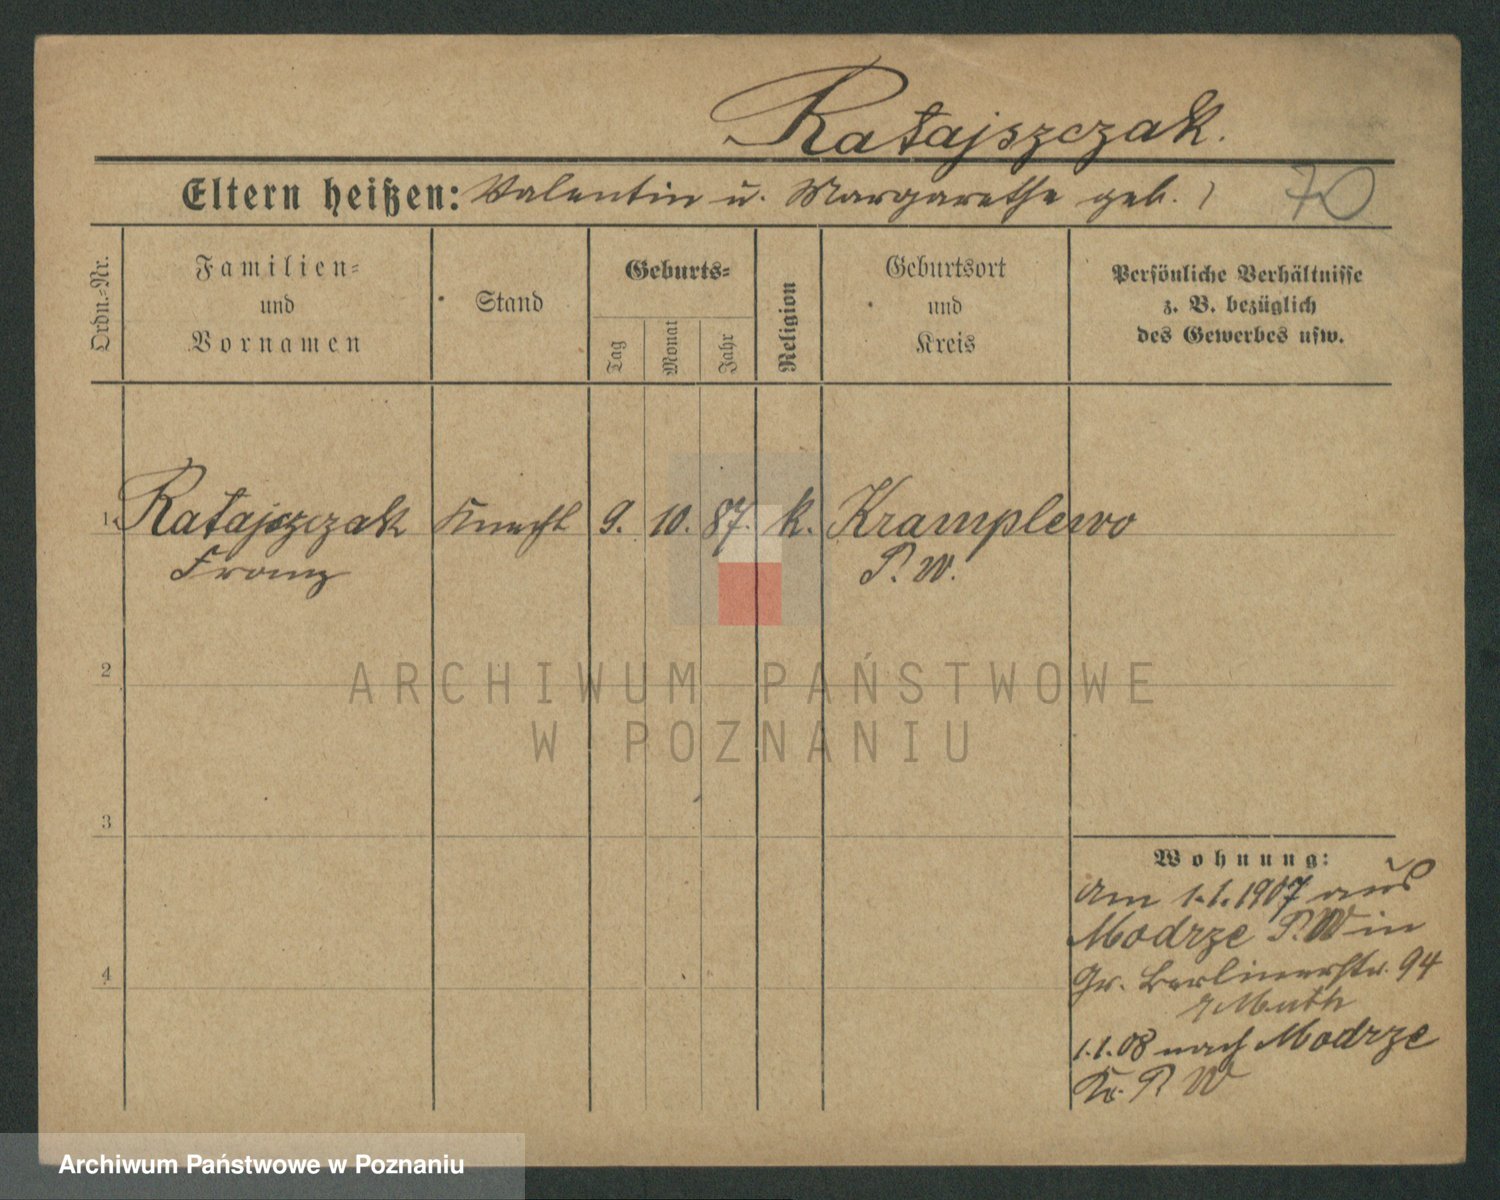 Ratajszczak.
Eltern heißen: Valentin u. Margarethe geb.
70
Ordn.-Nr.
Familien-
und
Vornamen
Stand
Geburts-
Tag
Monat
Jahr
Religion
Geburtsort
und
Kreis
Persönliche Verhältnisse
z. B. bezüglich
des Gewerbes usw.
1. Ratajszczak Knecht 9. 10. 87. k. Kramplewo
Franz P. W.
2
3
4
Wohnung:
Am 1.1.1907 aus
Modrze P. W in
Gr. Berlinerstr. 94
Muth
1.1.08 nach Modrze
Kr. P. W
ARCHIWUM PAŃSTWOWE
W POZNANIU
Archiwum Państwowe w Poznaniu